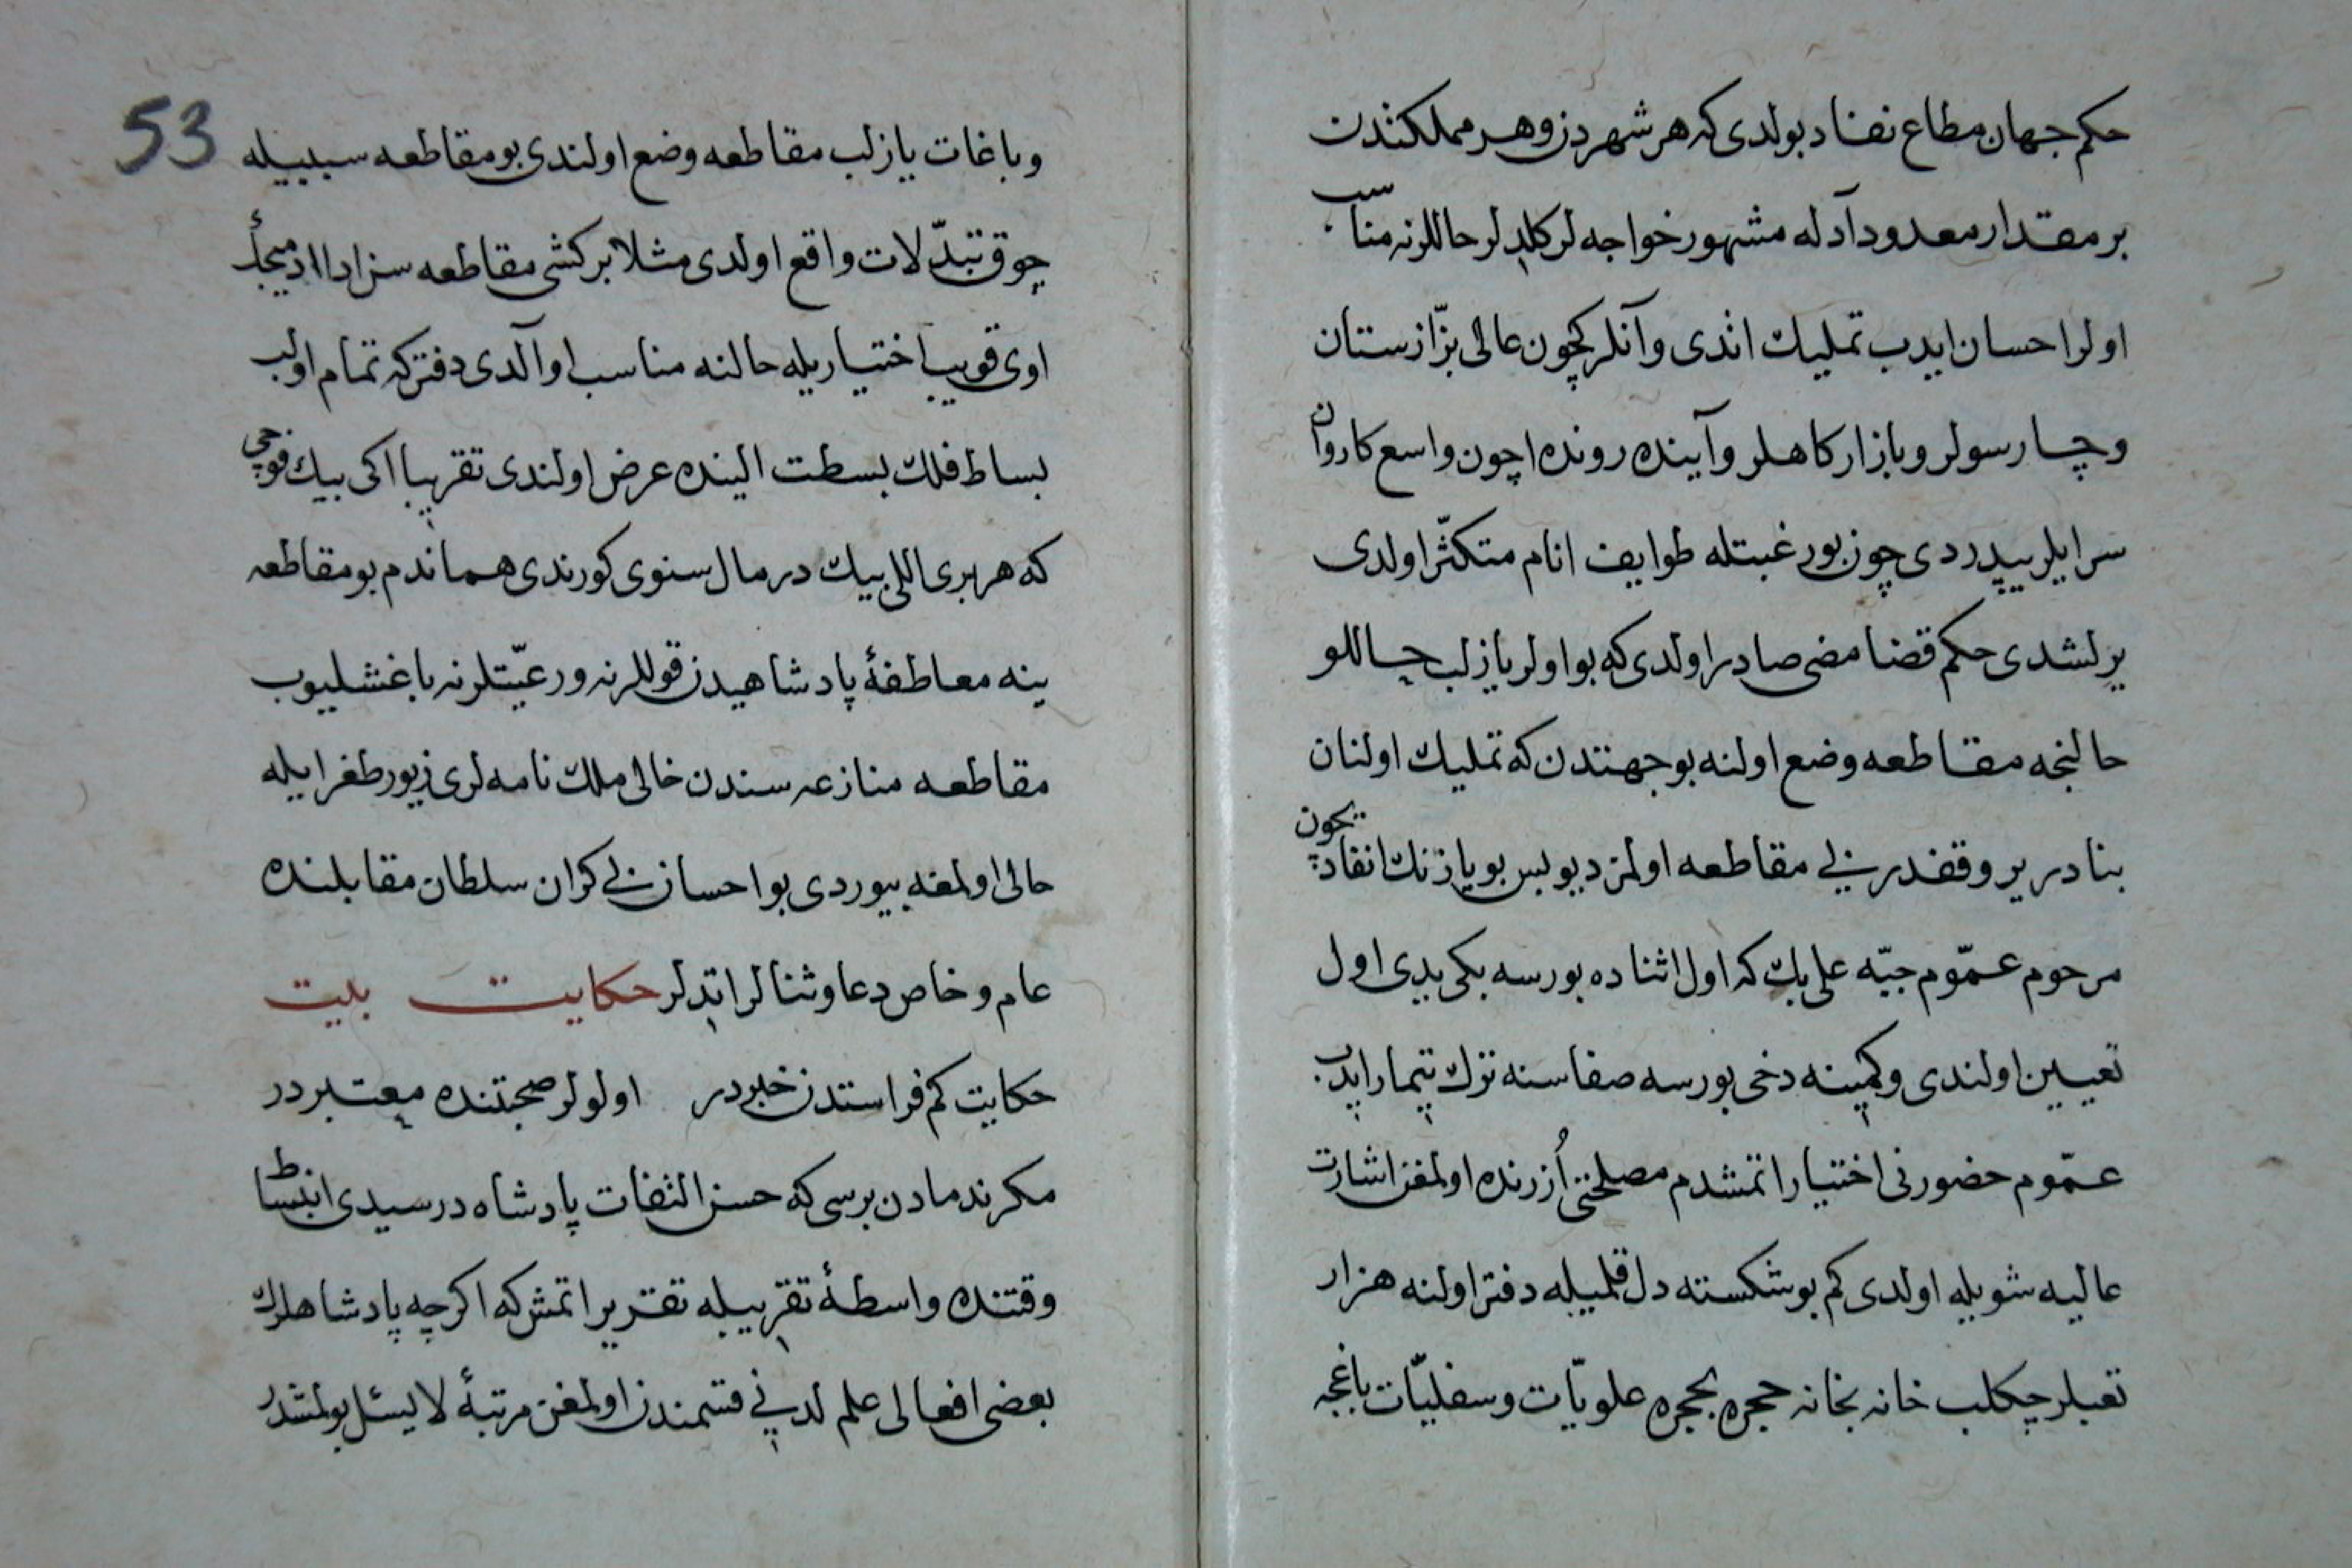 حكم جهان مطاع نفاد بولدی كه هر شهردن وهر مملكتدن
بر مقدار معدود آدله مشهور خواجه لر كلدیلر حاللرنه مناسب
اولر احسان ایدب تملیك اتدی وآنلر كچون عالی بزّازستان
وچارسولر وبازار كاهلر وآینده رونده اچون واسع كاروان
سرایلر یپدردی چون بو رغبتله طوایف انام متكثّر اولدی
یرلشدی حكم قضا مضی صادر اولدی كه بو اولر یازلب حاللو
حالنجه مقاطعه وضع اولنه بو جهتدن كه تملیك اولنان
بنادر یر وقفدر یری مقاطعه اولمز دیو بس بو یازنك انفادیچون
مرحوم عمّوم جبّه علی بك كه اول اثناده بورسه بكی یدی اول
تعیین اولندی وكمینه دخی بورسه صفاسنه ترك تیمار ایدب
عمّوم حضورنی اختیار اتمشدم مصلحتی اُزرنده اولمغن اشارت
عالیه شویله اولدی كم بو شكسته دل قلمیله دفتر اولنه هزار
تعبلر چكلب خانه بخانه حجره بحجره علویّات وسفلیّات باغچه
53
وباغات یازلب مقاطعه وضع اولندی بو مقاطعه سببیله
چوق تبدّلات واقع اولدی مثلا بر كشی مقاطعه سن ادا ادمیجأ
اوی قویب اختیاریله حالنه مناسب او آلدی دفتر كه تمام اولب
بساط فلك بسطت الینده عرض اولندی تقریبا اكی بیك فوچی
كه هر بری اللی بیك درمال سنوی كورندی هماندم بو مقاطعه
ینه معاطفۀ پادشاهیدن قوللرنه ورعیّتلرنه باغشلیوب
مقاطعه منازعه سندن خالی ملك نامه لری زیور طغرایله
حالی اولمغه بیوردی بو احسان بی كران سلطان مقابلنده
عام وخاص دعا وثنالر اتدیلر حكایت بیت
حكایت كم فراستدن خبردر اولولر صحبتنده معتبردر
مكر ندمادن برسی كه حسن التفات پادشاه درسیدی انبساط
وقتنده واسطۀ تقریبیله تقریر اتمش كه اكرچه پادشاهلرك
بعضی افعالی علم لدنی قسمندن اولمغن مرتبۀ لا یسئل بولمشدر